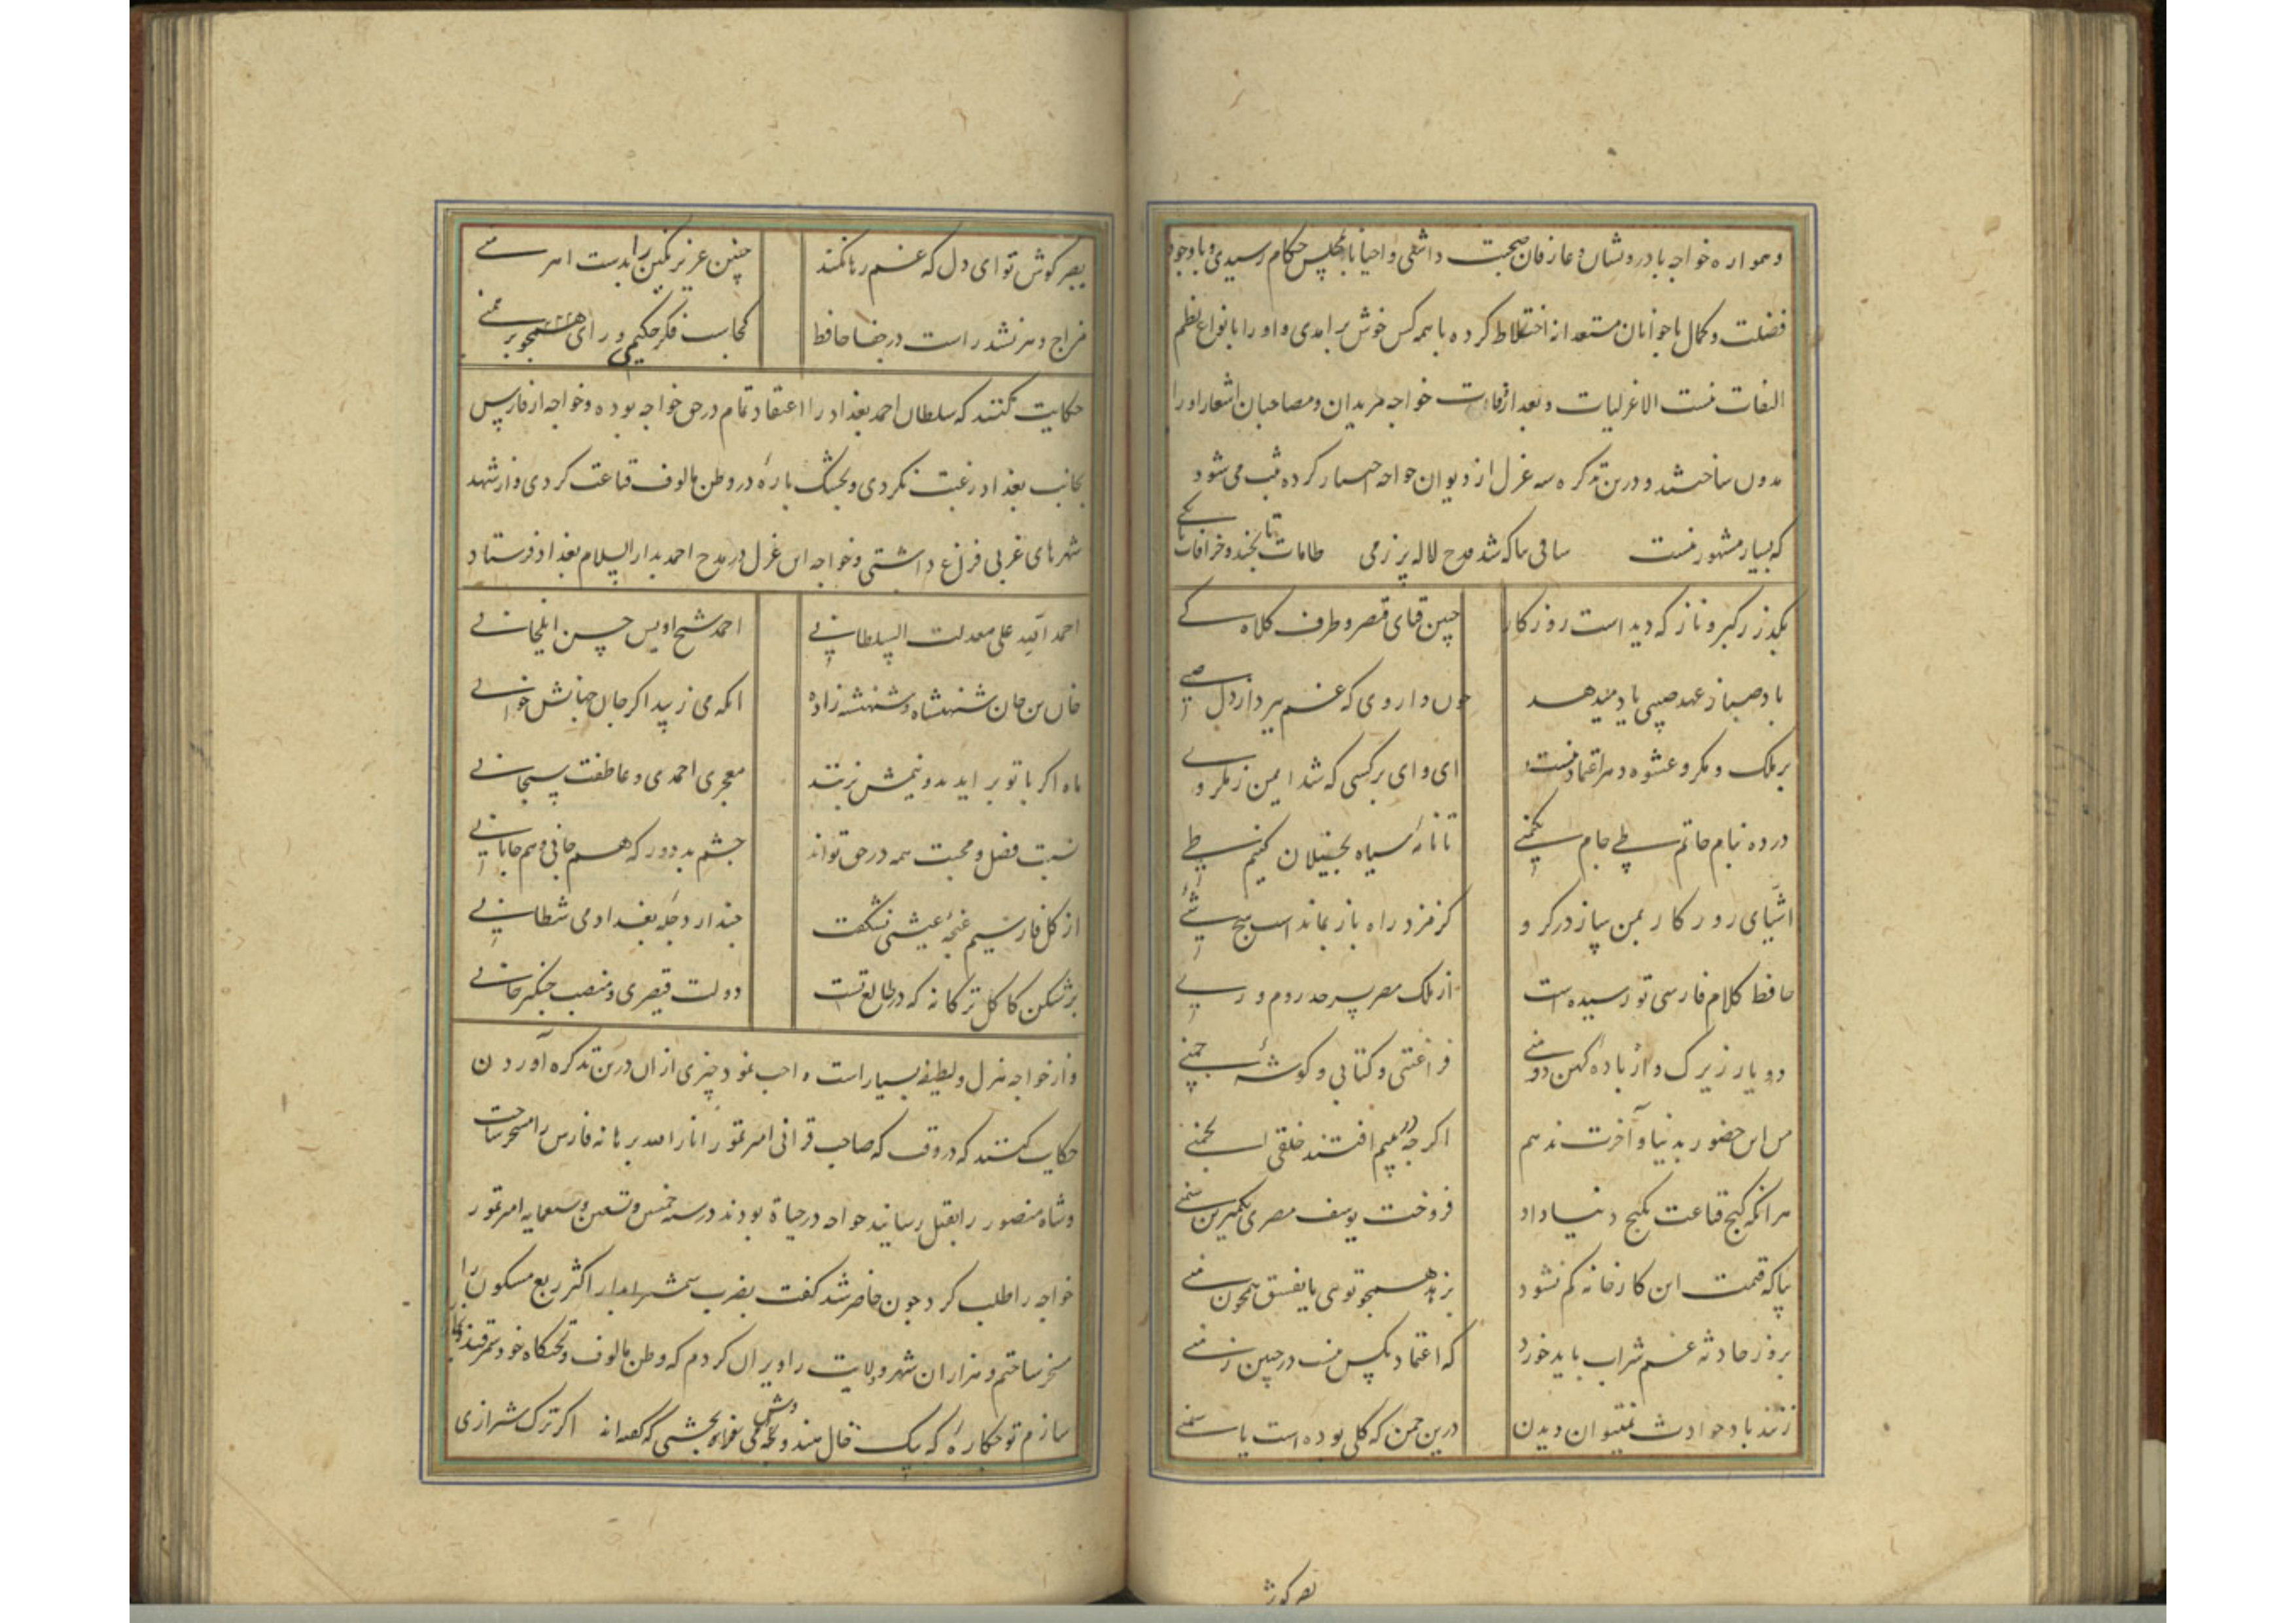 و همواره خواجه با درویشان و عارفان صحبت داشتی و احیانا بمجلس حکام رسیدی و با وجود
فضلت و کمال با جوانان مستعد از اختلاط کرده با همه کس خوش برامدی و او را بانواع نظم
التفات نست الا غزلیات و بعد از وفات خواجه مریدان و مصاحبان اشعار او را
مدون ساختند و درین تذکره سه غزل از دیوان خواجه اختیار کرده ثبت می شود
که بسیار مشهور نیست ساقی بیا که شد قدح لاله پر ز می طامات تا بچند و خرافات تا بکے
بگذر ز کبر و ناز که دید است روزکار چین قبای قیصر و طرف کلاه کے
باد صبا ز عهد صبی یاد میدهد جان داروی که غم ببرد از دل صبے
بر ملک و مکر و عشوه دهر اعتماد نیست ای وای بر کسی که شد ایمن ز مکر وے
در ده بنام حاتم طے جام یکمنے تا نامه سیاه بخیلان کنیم طے
اشیای روزکار بمن بیاز در کرو کز مزد راه باز نماند است هیچ شئے
حافظ کلام فارسی تو رسیده است از ملک مصر بسرحد روم و رے
دو یار زیرک و از باده کهن دو منے فراغتی و کتابی و کوشه چمنے
من این حضور بدنیا و آخرت ندهم اکر چه در پیم افتند خلقی انجمنے
هر انکه کنج قناعت بکنج دنیا داد فروخت یوسف مصری بکمترین ثمنے
بیا که قیمت این کارخانه کم نشود بزهد همچو تویی یا بفسق همچون منے
بروز حادثه غم شراب باید خورد که اعتماد بکس نیست در چنین زمنے
ز تند باد حوادث نمیتوان دیدن درین چمن که کلی بوده است یا سمنے
بصبر کوش
بصبر کوش تو ای دل که غم رها نکند چنین عزیز نکین را بدست اهرمنے
مزاج دهر تبه شد راست در جفا حافظ کجاست فکر حکیمی و رای برهمنے
حکایت کنند که سلطان احمد بغداد را اعتقاد تمام در حق خواجه بوده و خواجه از فارس
بجانب بغداد رغبت نکردی و بخشک پاره در وطن مالوف قناعت کردی و از شهد
شهرهای غربی فراغ داشتی و خواجه این غزل در مدح احمد بدار السلام بغداد فرستاد
احمد الله علی معدلت السلطانی احمد شیخ اویس حسن ایلخانی
خان بن خان شنهشاه و شنهشه زاده انکه می زیبد اکر جان جهانش خوانی
ماه اکر با تو براید بدو نیمش بزنند معجزی احمدی و عاطفت سبحانی
نسبت فضل و محبت همه در حق تواند چشم بد دور که هم جانی و هم جانانی
از کل فارسیم غنچه عیشی نشکفت حبذا دجله بغداد و می شطانی
بر شکن کاکل ترکانه که در طالع تست دولت قیصری و منصب چنکیز خانی
و از خواجه هزل و لطیفه بسیار است واجب نمود چیزی از ان درین تذکره آوردن
حکایت کنند که در وقت که صاحب قرانی امیر تمور انار الله برهانه فارس را مسخر ساخت
و شاه منصور را بقتل رسانید خواجه در حیاة بودند در سنه خمس و تسعین و سبعمایه امیر تمور
خواجه را طلب کرد چون حاضر شد کفت بضرب شمشیر ابدار اکثر ربع مسکون را
مسخر ساختم و هزاران شهر و ولایت را ویران کردم که وطن مالوف و تختکاه خود سمرقند و بخارا
سازم تو حکاره که یک خال هندوش بخشی که کفته اند اکر ترک شیرازی